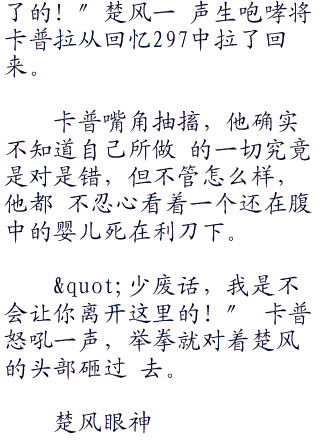 了的！〞楚风一 声生咆哮将
卡普拉从回忆297中拉了回
来。
卡普嘴角抽搐，他确实
不知道自己所做 的一切究竟
是对是错，但不管怎么样，
他都 不忍心看着一个还在腹
中的婴儿死在利刀下。
&quot;少废话，我是不
会让你离开这里的！〞 卡普
怒吼一声，举拳就对着楚风
的头部砸过 去。
楚风眼神